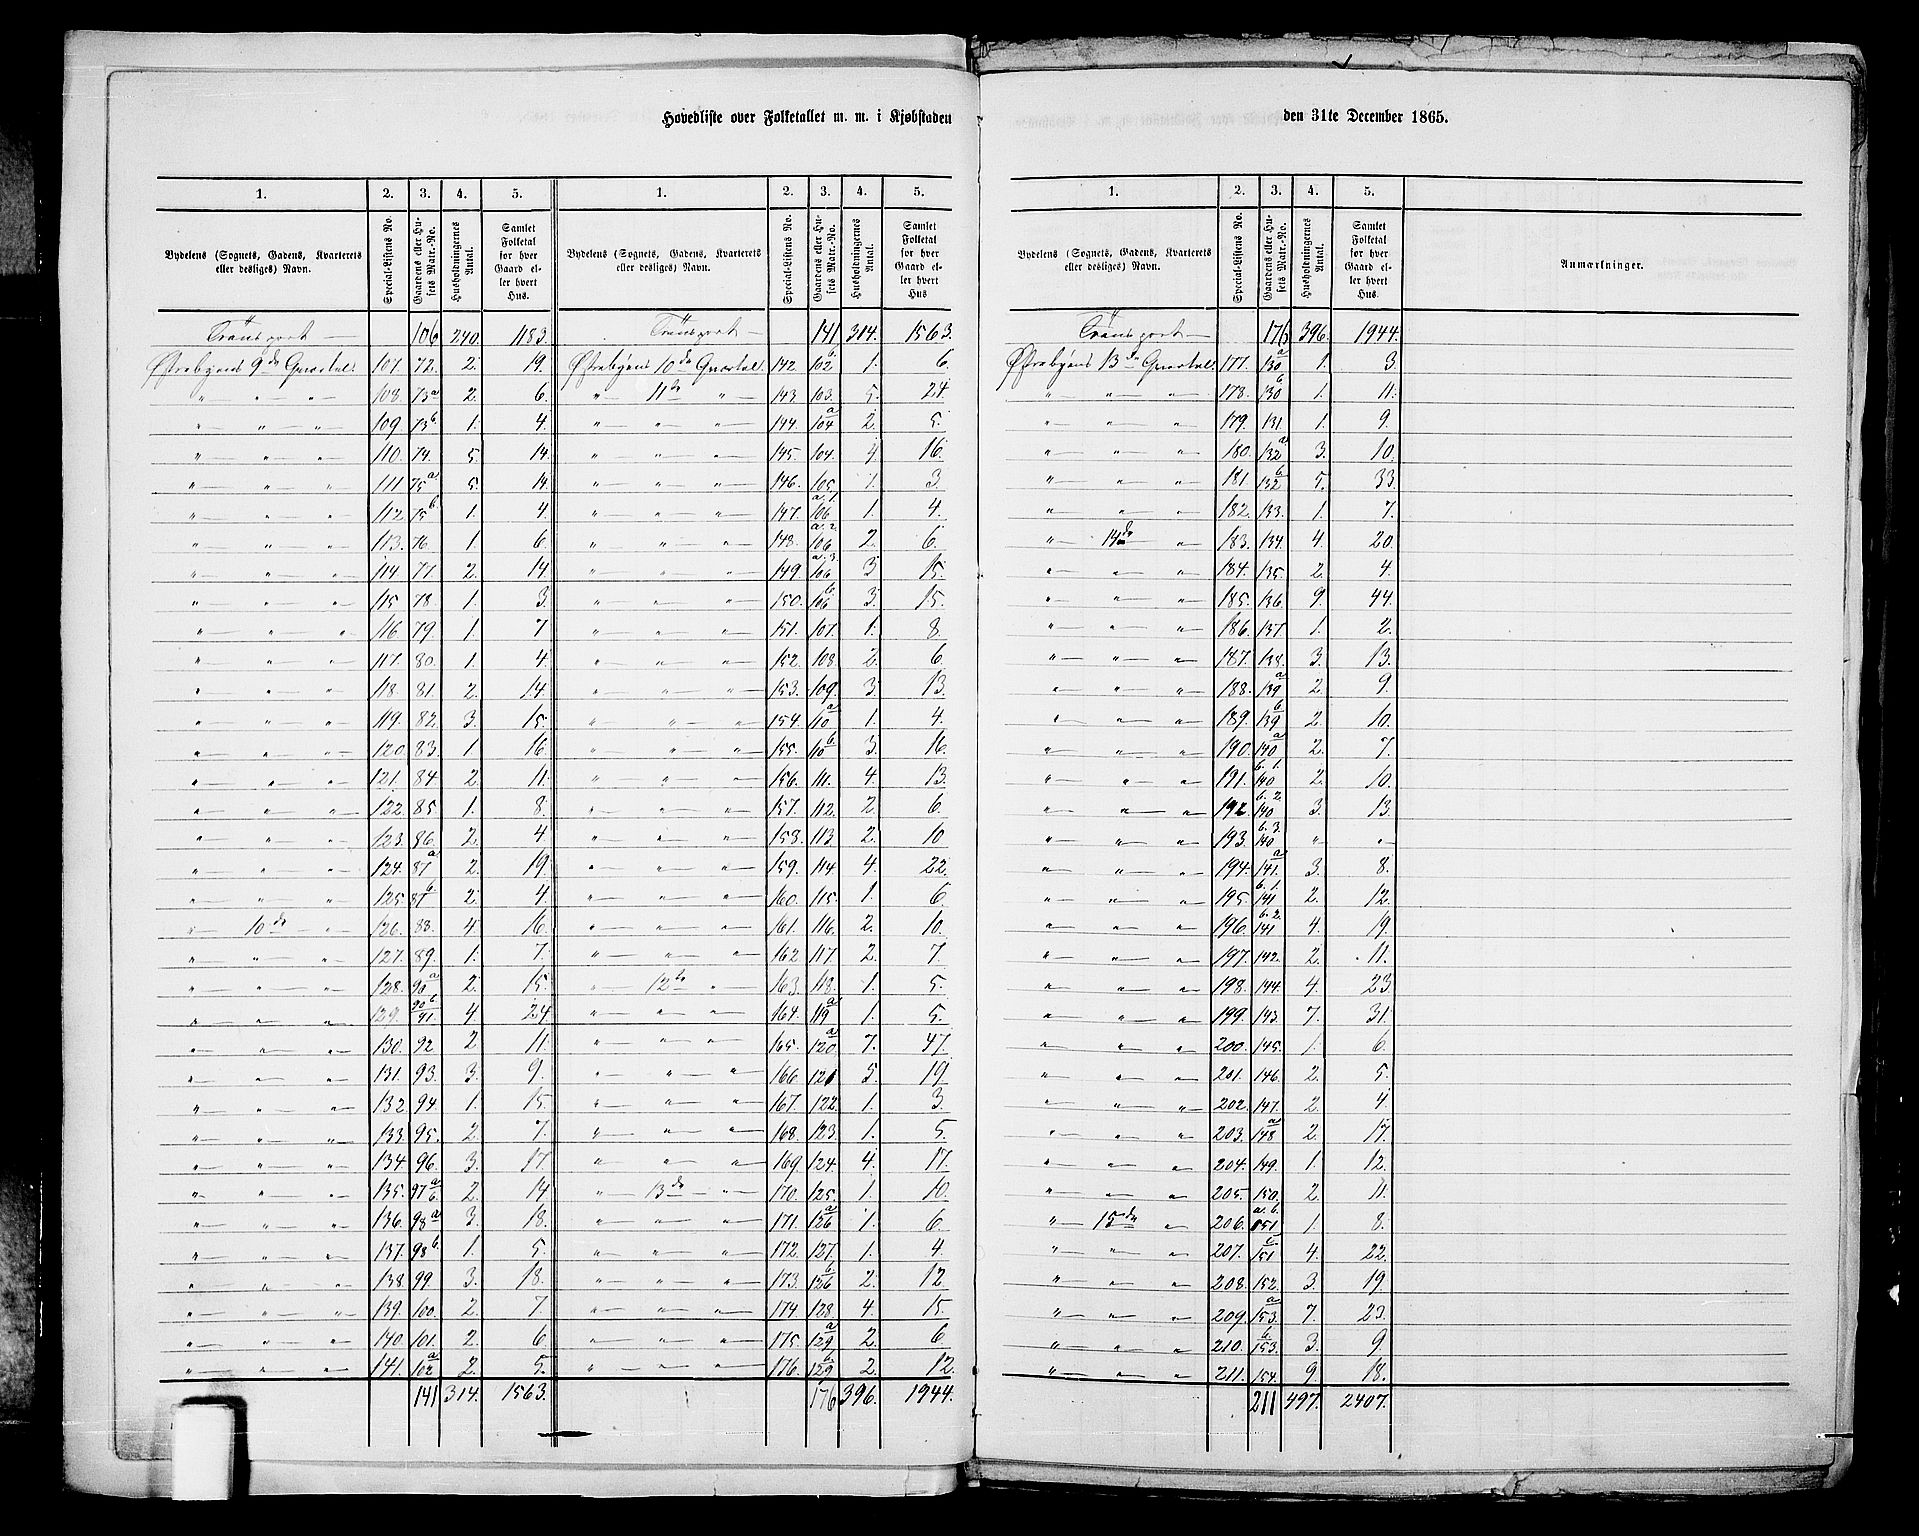 Hovedliste over Folketallet m. m. i Kjøbstaden
1. 2. 3. 4. 5. 1. 2. 3. 4. 5.
Bydelens (Sognets, Gadens, Kvarterets eller desliges) Navn. Special-Listens No. Gaardens eller Husets Matr.-No. Husholdningernes Antal. Samlet Folketal for hver Gaard eller hvert Hus. Bydelens (Sognets, Gadens, Kvarterets eller desliges) Navn. Special-Listens No. Gaardens eller Husets Matr.-No. Husholdningernes Antal. Samlet Folketal for hver Gaard eller hvert Hus
Transport — 106 240. 1183. Transport — 141 314. 1563.
Østrebyens 9de Quartal. 107. 72. 2. 19. Østrebyens 10de Quartal. 142. 102 b. 1. 6.
" — " — " — 108. 73 a 2. 6. " — 11te " — 143. 103. 5. 24.
" — " — " — 109 73 b. 1. 4. " — " — " — 144. 104 a 2. 5.
" — " — " — 110. 74. 5. 14. " — " — " — 145. 104. 4 16.
" — " — " 111 75 a. 5. 14. " — " — " — 146. 105 1. 3.
" — " — " — 112. 75 b. 1. 4. " — " — " — 147. 106 a. 1. 1. 4.
" — " — " 113. 76. 1. 6. " — " — " — 148. 106 a. 2. 2. 6.
" — " — " 114. 77. 2. 14. " — " — " — 149. 106 a. 3. 3 15.
" — " — " 115 78. 1. 3. " — " — " — 150. 106 b. 3. 15.
" — " — " 116 79. 1. 7 " — " — " — 151. 107. 1. 8.
" — " — " 117. 80. 1. 4. " — " — " — 152. 108. 2. 6.
" — " — " 118. 81. 2. 14. " — " — " 153. 109. 3. 13.
" — " — " 119. 82. 3. 15. " — " — " 154. 110 a 1. 4.
" — " — " 120. 83. 1. 16 " — " — " 155. 110 b. 3. 16.
" — " — " 121. 84. 2. 11. " — " — " 156. 111. 4. 13.
" — " — " 122. 85. 1. 8. " — " — " 157. 112. 2 6.
" — " — " 123. 86. 2. 4 " — " — " 158. 113 2. 10
" — " — " 124. 87 a 2. 19. " — " — " 159. 114 4. 22.
" — " — " 125. 87 b. 2. 4. " — " — " 160. 115. 1. 6.
" — 10de — " 126. 88. 4. 16. " — " — " 161. 116. 2. 10.
" — " — " 127. 89. 1. 7. " — " — " 162 117. 2. 7.
" — " — " 128. 90 a 2. 15. " — 12te " — 163. 118. 1. 5.
" — " — " 129. 90 b. 91. 4. 24. " — " — " — 164. 119 a 1. 5.
" — " — " 130. 92 2 11. " — " — " — 165. 120 a 7. 47.
" — " — " 131. 93. 3. 9. " — " — " 166. 121 5. 19
" — " — " 132. 94. 1. 15. " — " — " 167. 122. 1 3.
" — " — " 133. 95. 2. 7. " — " — " 168. 123. 1. 5.
" — " — " 134. 96. 3. 17. " — " — " 169. 124. 4. 17.
" — " — " 135. 97 a b. 2. 14 " — 13de — " — 170. 125. 1. 10.
" — " — " 136. 98 a 3. 18. " — " — " 171. 126 a 1. 6.
" — " — " 137. 98 b. 1. 5. " — " — " 172. 127. 1 4.
" — " — " 138. 99. 3. 18. " — " — " 173. 126 b. 2. 12
" — " — " 139. 100. 2. 7. " — " — " — 174. 128 4. 15.
" — " — " 140. 101. 2. 6 " — " — " — 175. 129 a 2. 6
" — " — " 141. 102 a 2. 5. " — " — " — 176. 129 b. 2. 12.
141 314. 1563. 176 396. 1944.
den 31te December 1865.
1. 2. 3. 4. 5.
Bydelens (Sognets, Gadens, Kvarterets eller desliges) Navn. Special-Listens No. Gaardens eller Husets Matr.-No. Husholdningernes Antal. Samlet Folketal for hver Gaard eller hvert Hus. Anmærkninger.
Transport — 176 396. 1944.
Østrebyens 13de Quartal. 177. 130 a 1. 3.
" — " — " 178. 130 b 1. 11.
" — " — " 179. 131. 1. 9.
" — " — " 180. 132 a 3. 10.
" — " — " 181. 132 b. 5. 33.
" — " — " 182. 133. 1. 7.
" — 14de — " 183. 134. 4. 20.
" — " — " 184. 135. 2. 4.
" — " — " 185. 136. 9. 44.
" — " — " 186. 137. 1. 2.
" — " — " 187. 138. 3. 13.
" — " — " 188. 139 a 2. 9.
" — " — " 189. 139 b 2. 10.
" — " — " 190. 140 a 2. 7.
" — " — " 191. 140 b. 1. 2. 10.
" — " — " 192. 140 b. 2. 3. 13.
" — " — " 193. 140 b. 3. " "
" — " — " 194. 141. a 3. 8.
" — " — " 195. 141 b. 1. 2. 12.
" — " — " 196. 141 b. 2. 4. 19.
" — " — " 197. 142. 2. 11.
" — " — " 198. 144. 4. 23
" — " — " 199. 143. 7. 31.
" — " — " 200. 145. 1. 6.
" — " — " 201. 146. 2. 5.
" — " — " 202. 147. 2. 4.
" — " — " 203. 148 a 2. 17.
" — " — " 204. 149. 1. 12.
" — " — " 205. 150. 2. 11.
" 15de " 206. 151 a. b. 1. 8.
" — " — " 207. 151 c. 4. 22.
" — " — " 208. 152. 3. 19.
" — " — " 209. 153. a 7. 23.
" — " — " 210. 153. b. 3. 9.
" — " — " 211. 154. 9 18.
211 497. 2407.